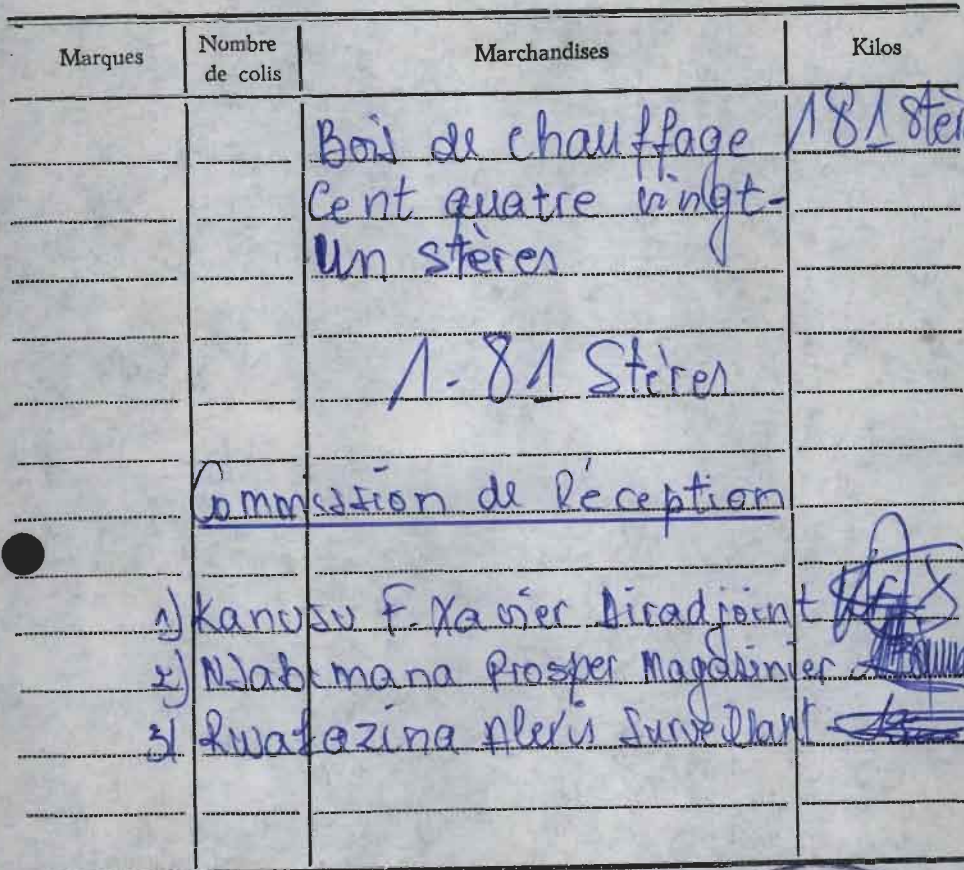 Marques Nombre de colis Marchandises Kilos
Bois de chauffage 181 stèr
Cent quatre vingt-
Un stères
1-81 Stères
Commission de Réception
1) Kanusu F. Xavier Diradjoint
2) Prosper Magasinier
3) Alexis Surveillant